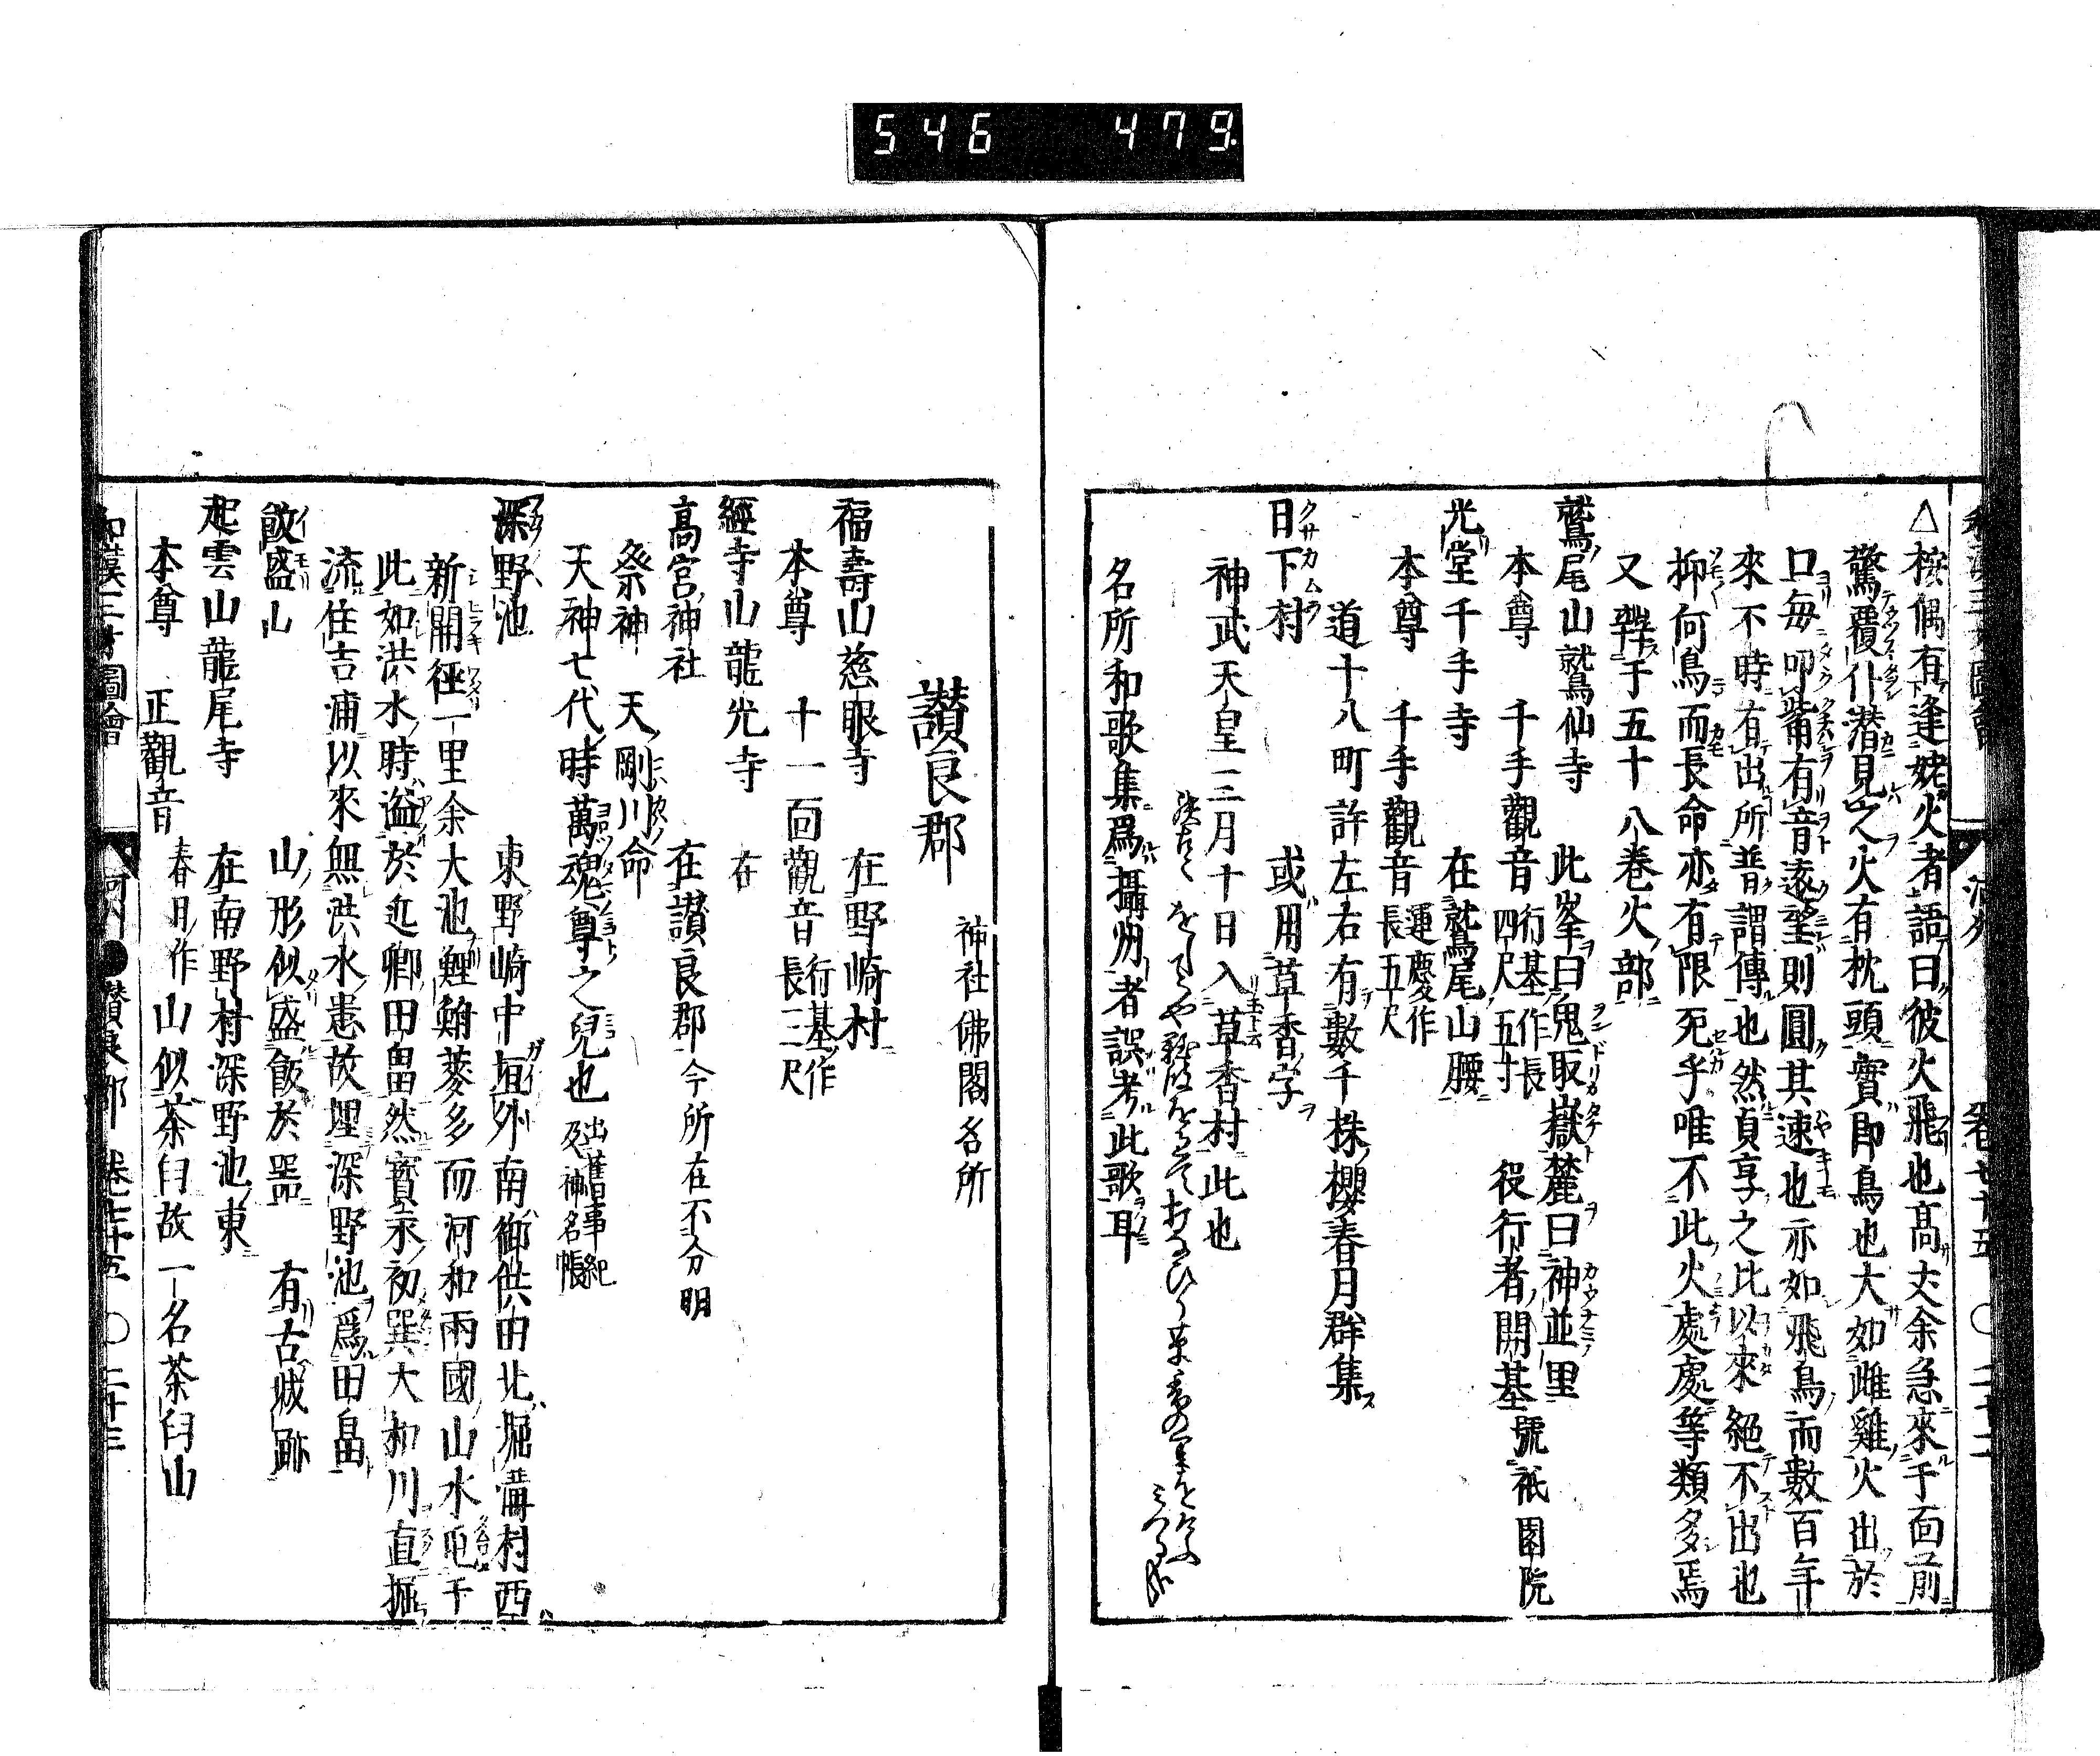 546 479
△按偶有逢姥火者語曰彼火飛也髙𠀋余急來于面前
驚覆仆潜見之火有枕頭實即鳥也大如雌雞火出於
口毎叩觜有音遠望則圓其速也亦如飛鳥而數百年
來不時有出所普謂傳也然貞享之比以來絕不出也
抑何鳥而長命亦有限死乎唯不此火處處等類多焉
又 于五十八卷火部
鷲尾山鷲仙寺 此峯曰鬼取嶽麓曰神並里
本尊 千手觀音 行基作長四尺五寸 役行者開基號祇園院
光堂千手寺 在鷲尾山腰
本尊 千手觀音 運慶作長五尺
道十八町許左右有數千株櫻春月群集
日下村 或用草香字
神武天皇三月十日入草香村此也
名所和歌集爲攝州者誤考此歌耳
讃良郡 神社佛閣名所
福壽山慈眼寺 在野崎村
本尊 十一面觀音 行基作長三尺
經寺山龍光寺 在
髙宮神社 在讃良郡今所在不分明
祭神 天剛川命
天神七代時萬魂尊之兒也 出舊事紀及神名帳
深野池 東野崎中垣外南御供田北堀溝村西
新開徑一里余大池鯉鮒菱多而河和兩國山水 于
此如洪水時溢於近鄉田畠然寳永初 大和川直掘
流住吉浦以來無洪水患故埋深野池爲田畠
飯盛山 山形似盛飯於器 有古城跡
起雲山龍尾寺 在南野村深野池東
本尊 正觀音 春日作 山似茶臼故一名茶臼山
和漢三才圖會 河内 讃良郡 卷七十五 ○二十三